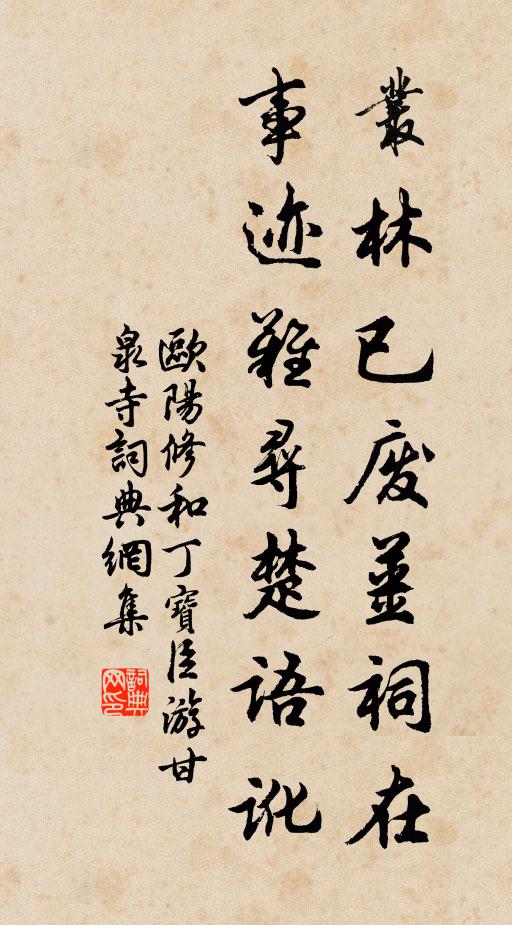 叢林已废薑祠在
事迹難尋楚語訛
歐陽修和丁寶臣游甘
泉寺詞典網集
詞典網印